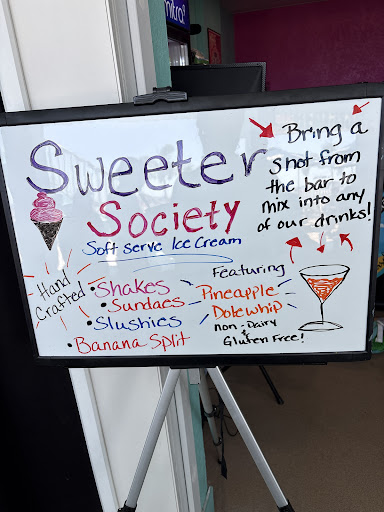 Sweeter
Society
Soft serve Ice Cream
Bring a
shot from
the bar to
mix into any
of our drinks!
Hand
Crafted
•Shakes
•Sundaes
•Slushies
•Banana Split
Featuring
Pineapple
Dole whip
non-Dairy
&
Gluten Free!